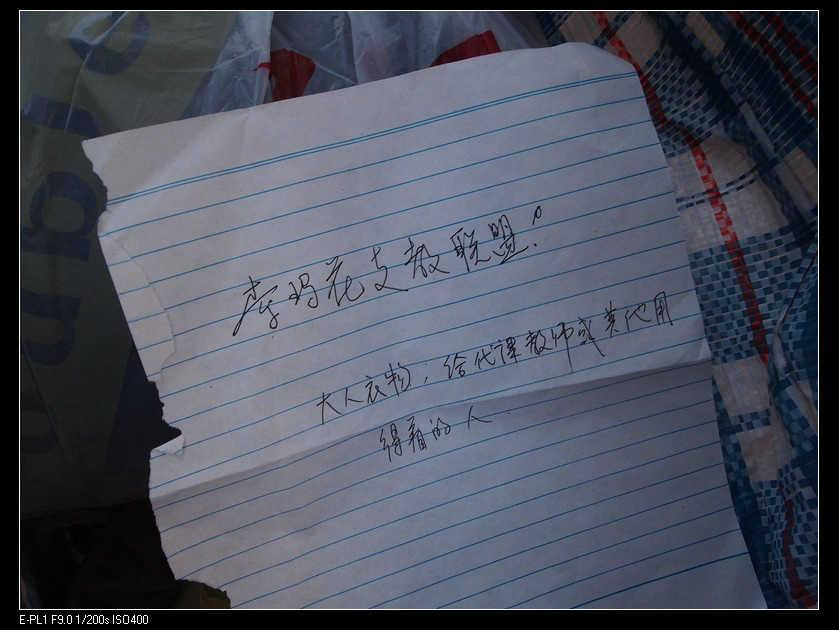 李玛花支教联盟。
大人衣物，给代课教师或其他用
得着的人
E-PL1 F9.0 1/200s ISO400